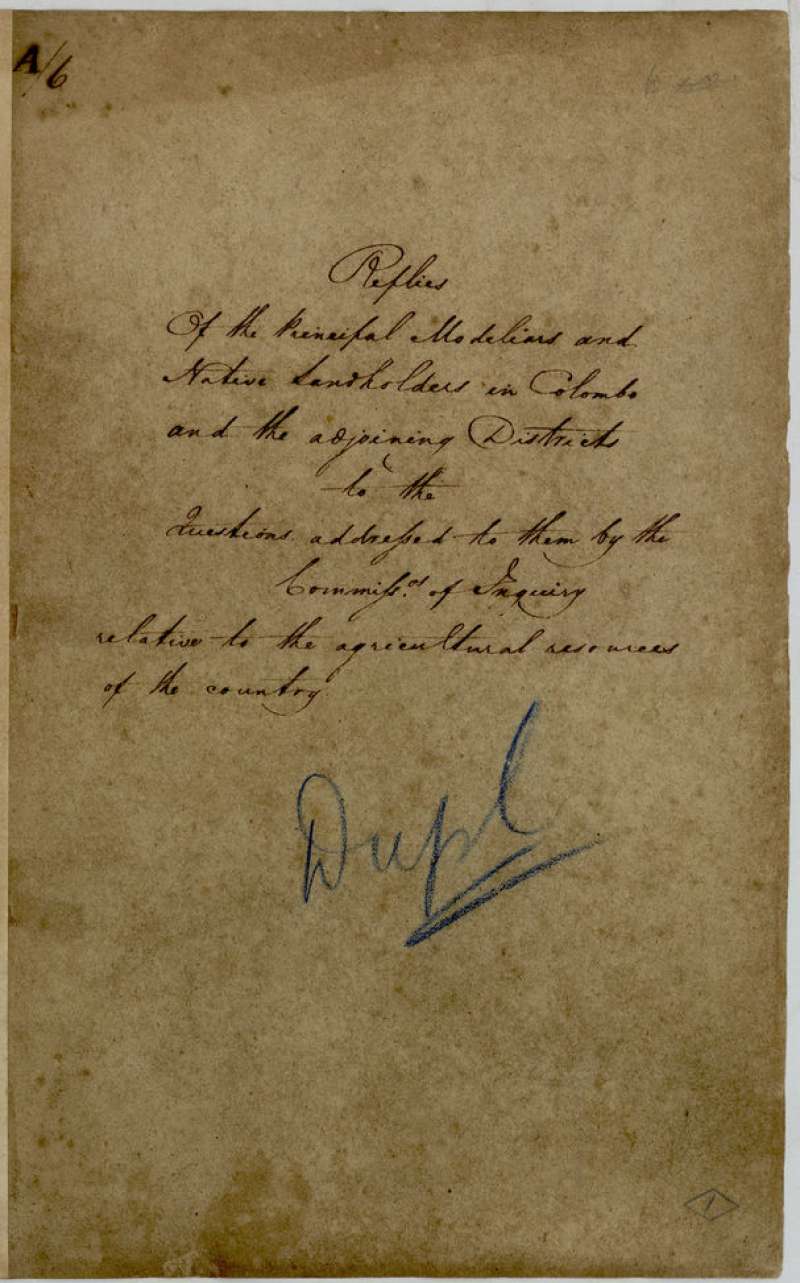 A/6
Replies
Of the Principal Modeliars and
Native Landholders in Colombo
and the adjoining Districts
to the
Questions addressed to them by the
Commissrs. of Inquiry
relative to the agricultural resources
of the country
Dupl
1